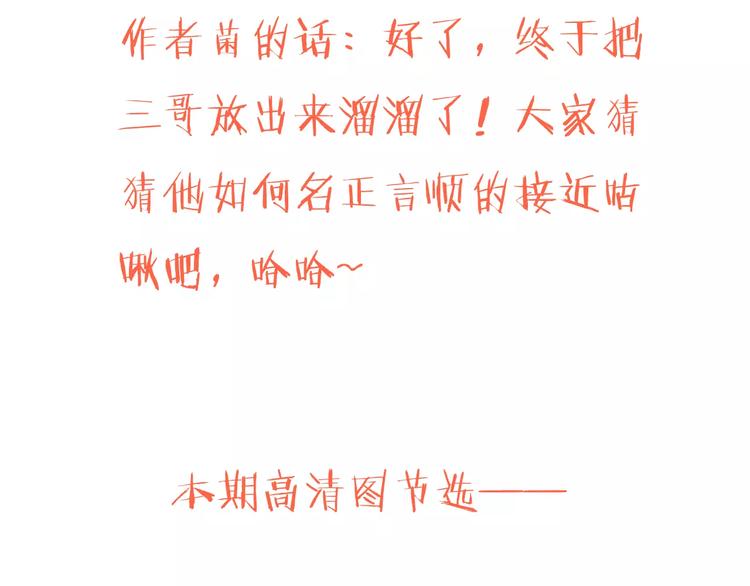 作者菌的话：好了，终于把
三哥放出来溜溜了！大家猜
猜他如何名正言顺的接近咕
啾吧，哈哈~
本期高清图节选——